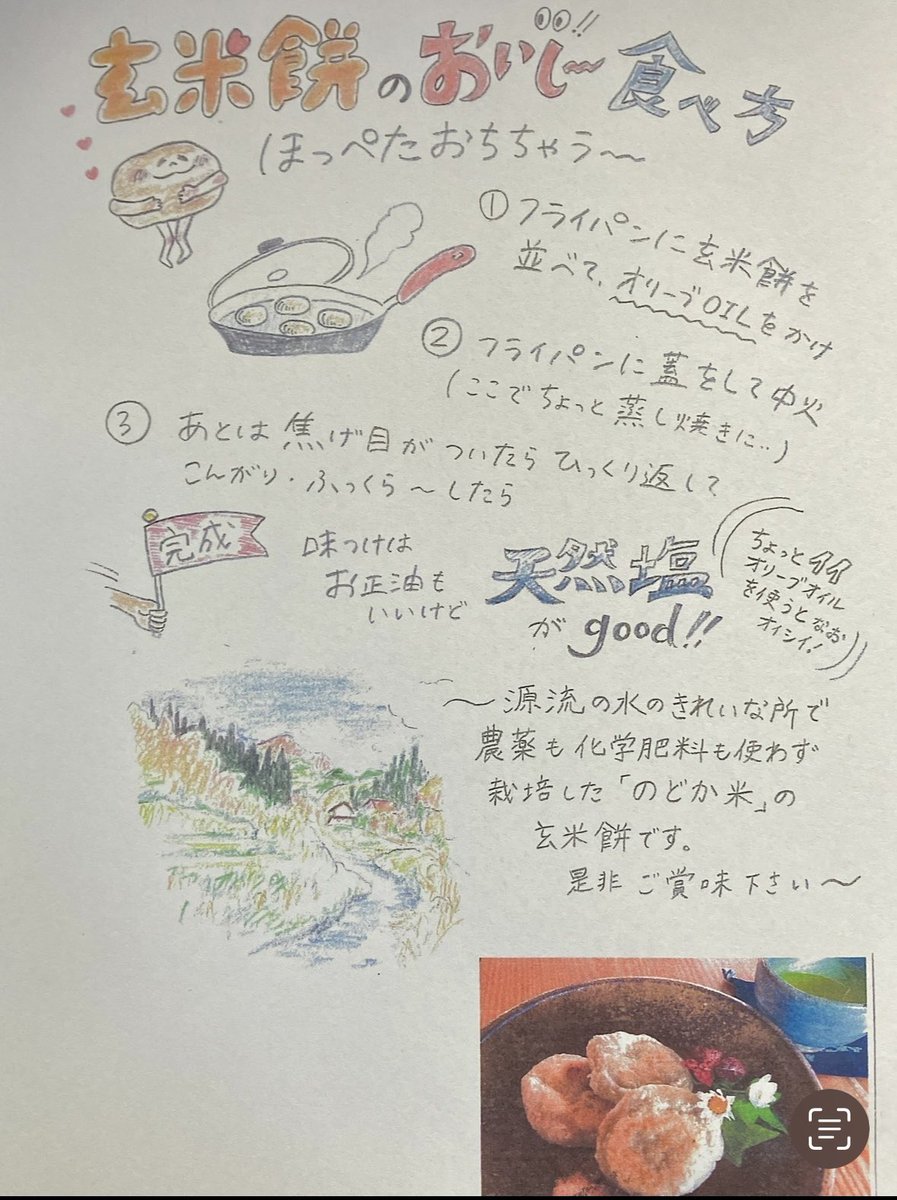 玄米餅のおいし〜食べ方
ほっぺたおちちゃう〜
① フライパンに玄米餅を
並べて、オリーブOILをかけ
② フライパンに蓋をして中火
(ここでちょっと蒸し焼きに‥)
③ あとは焦げ目がついたらひっくり返して
こんがり・ふっくら〜したら
完成
味つけは
お正油も
いいけど
天然塩
が good!!
ちょっとイイ
オリーブオイル
を使うとなお
オイシイ!
〜源流の水のきれいな所で
農薬も化学肥料も使わず
栽培した「のどか米」の
玄米餅です。
是非ご賞味下さい〜